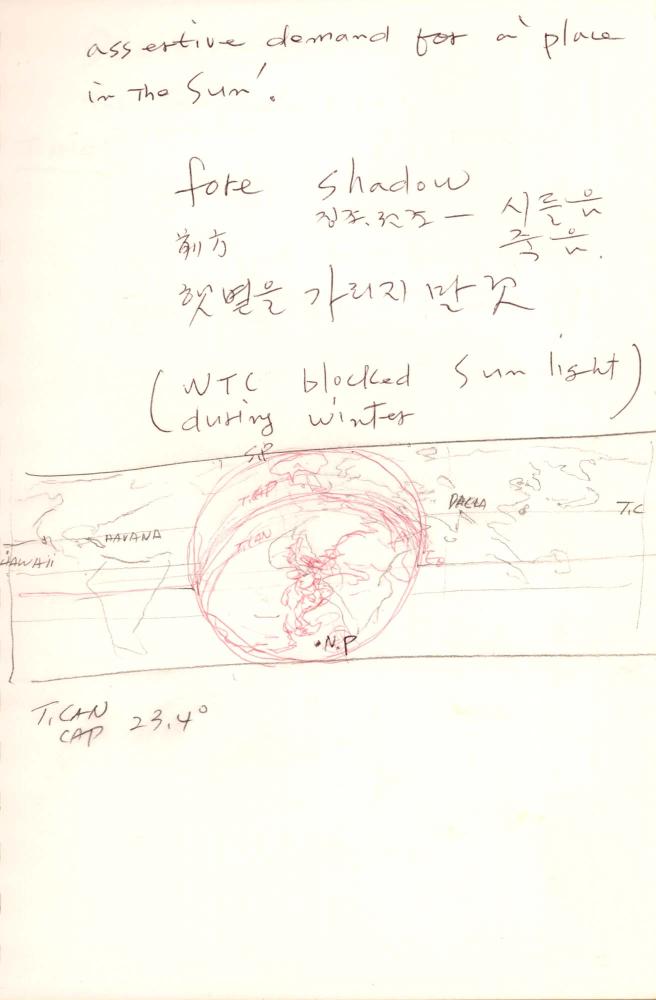 assertive demand for a' place
in The Sun'.
fore shadow
징조. 전조 — 시들음
죽음.
前方
햇볕을 가리지 말 것
(WTC blocked Sun light)
during winter
S.P
T.CAP
T.CAN
HAVANA
HAWAII
DACCA
T.C
N.P
T.CAN
CAP 23.4°